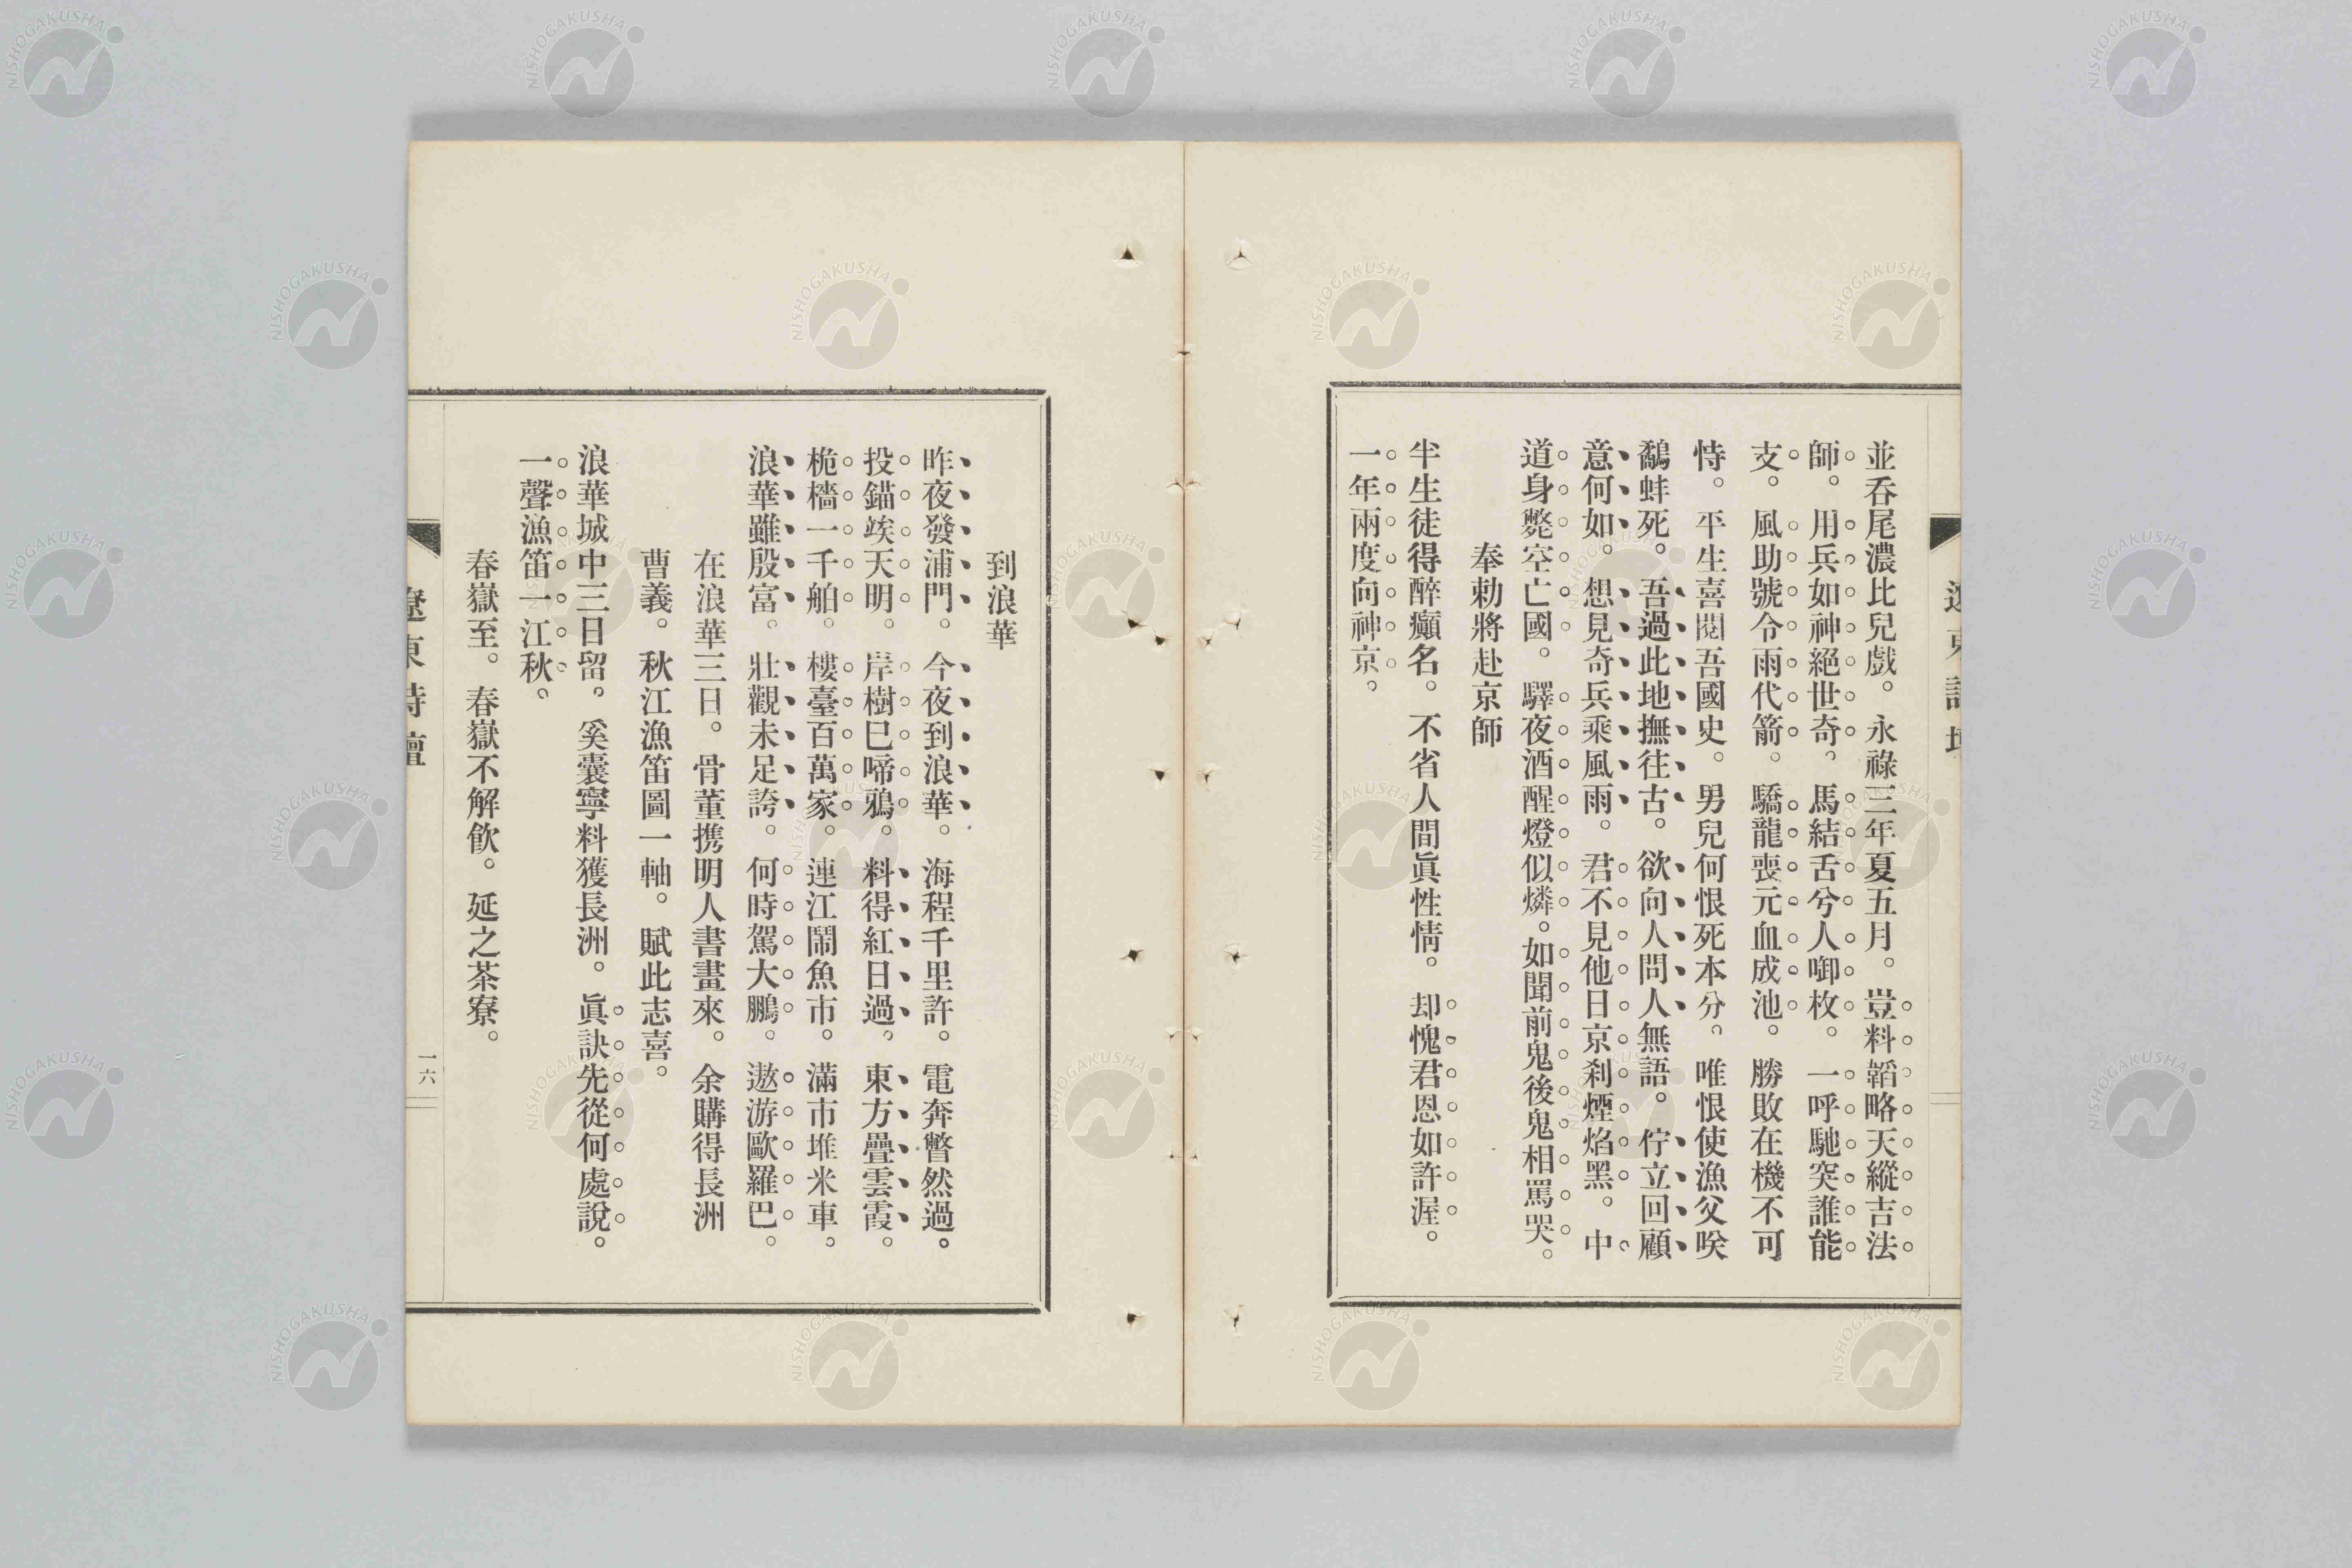 並吞尾濃比兒戲。永祿三年夏五月。豈料韜略天縱吉法
師。用兵如神絕世奇。馬結舌兮人啣枚。一呼馳突誰能
支。風助號令雨代箭。驕龍喪元血成池。勝敗在機不可
恃。平生喜閱吾國史。男兒何恨死本分。唯恨使漁父咲
鷸蚌死。吾過此地撫往古。欲向人問人無語。佇立回顧
意何如。想見奇兵乘風雨。君不見他日京刹煙焰黑。中
道身斃空亡國。驛夜酒醒燈似燐。如聞前鬼後鬼相罵哭。
奉勅將赴京師
半生徒得醉癲名。不省人間眞性情。却愧君恩如許渥。
一年兩度向神京。
到浪華
昨夜發浦門。今夜到浪華。海程千里許。電奔瞥然過。
投錨竢天明。岸樹巳啼鴉。料得紅日過。東方疊雲霞。
桅檣一千舶。樓臺百萬家。連江鬧魚市。滿市堆米車。
浪華雖殷富。壯觀未足誇。何時駕大鵬。遨游歐羅巴。
在浪華三日。骨董携明人書畫來。余購得長洲
曹義。秋江漁笛圖一軸。賦此志喜。
浪華城中三日留。奚囊寧料獲長洲。眞訣先從何處說。
一聲漁笛一江秋。
春嶽至。春嶽不解飮。延之茶寮。
遼東詩壇
一六
NISHOGAKUSHA